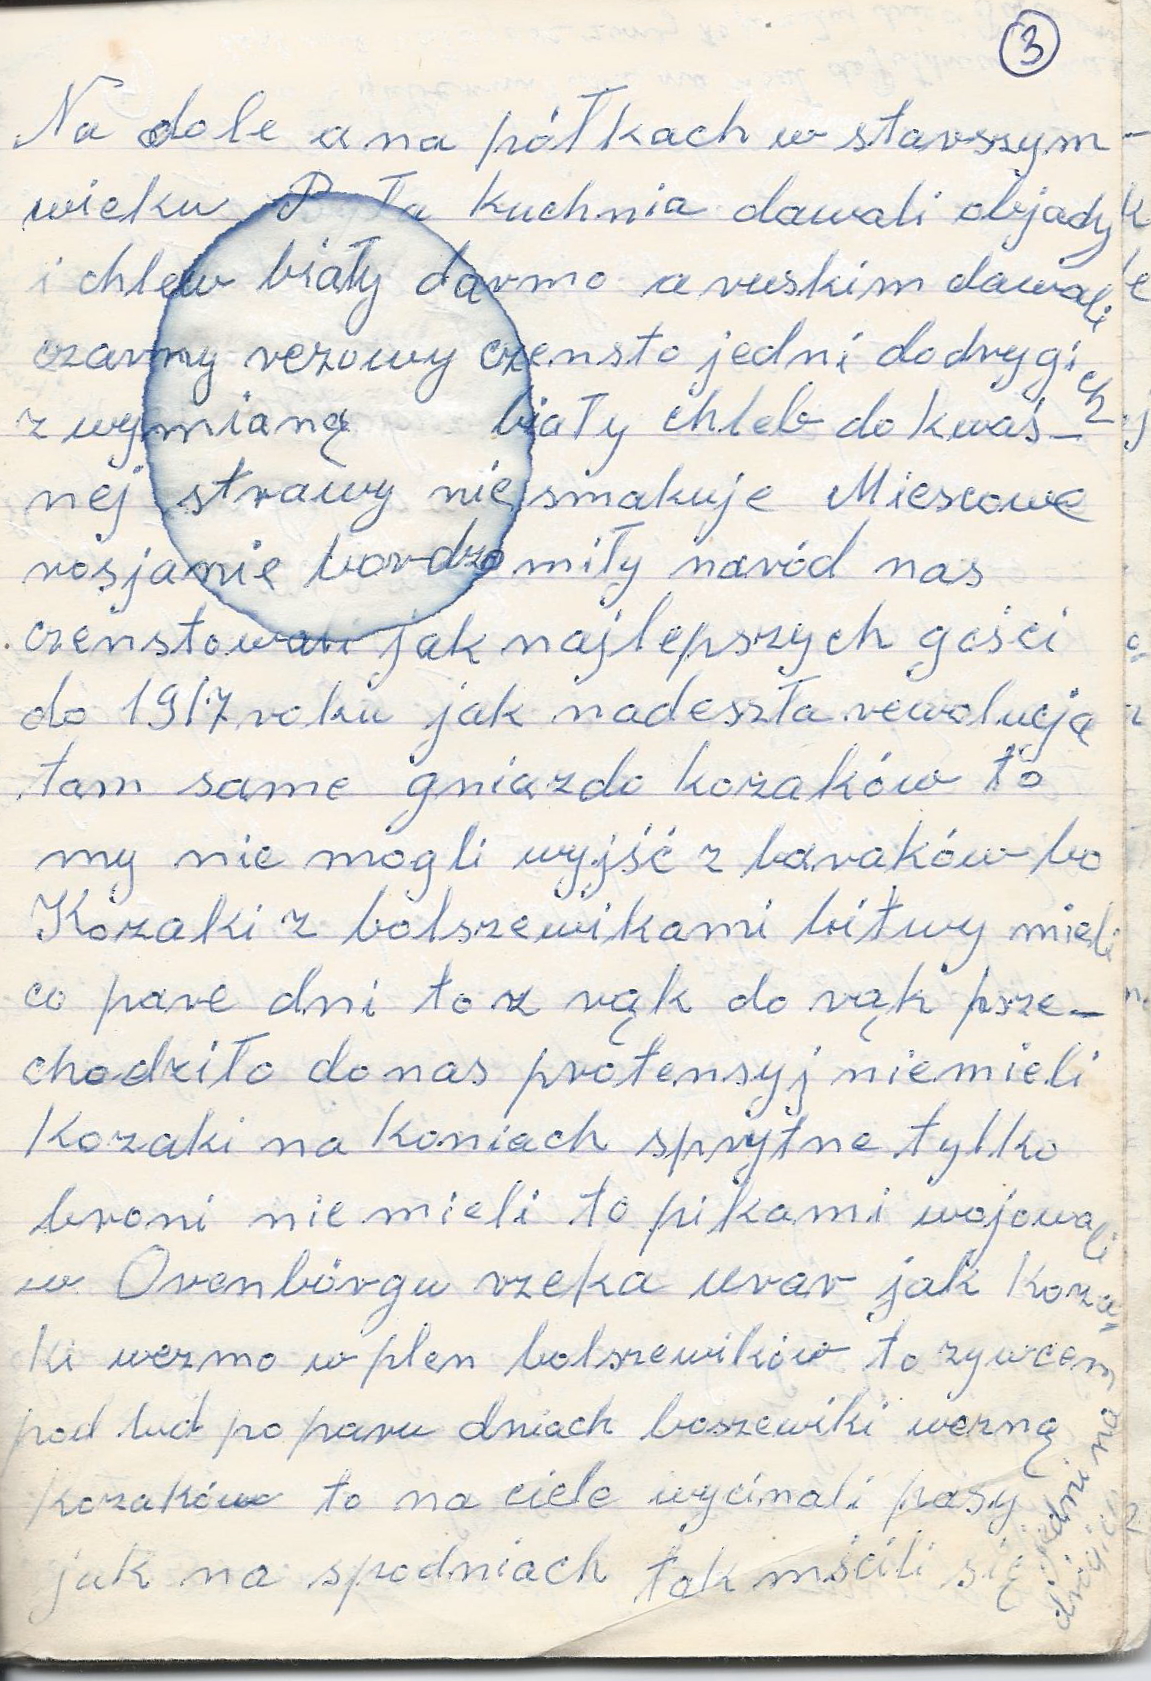 3
Na dole a na półkach w starszym
wieku kuchnia dawali objady
i chlew biały darmo a ruskim dawali
czarny rezowy czensto jedni do drygich
z wymianą biały chleb do kwaś-
nej strawy nie smakuje Miescowe
rosjanie bordzo miły naród nas
czenstowali jak najlepszych gości
do 1917 roku jak nadeszła rewolucja
tam same gniazdo kozaków to
my nie mogli wyjść z baraków bo
Kozaki z bolszewikami bitwy mieli
co pare dni to z rąk do rąk prze-
chodziło do nas protensyj niemieli
Kozaki na koniach sprytne tylko
broni nie mieli to pikami wojowali
w Orenbórgu rzeka urar jak Koza-
ki wezmo w plen bolszewików to zywcem
pod lud po paru dniach boszewiki wezną
kozaków to na ciele wycinali pasy
jak na spodniach tak mścili się
jedni na drógich